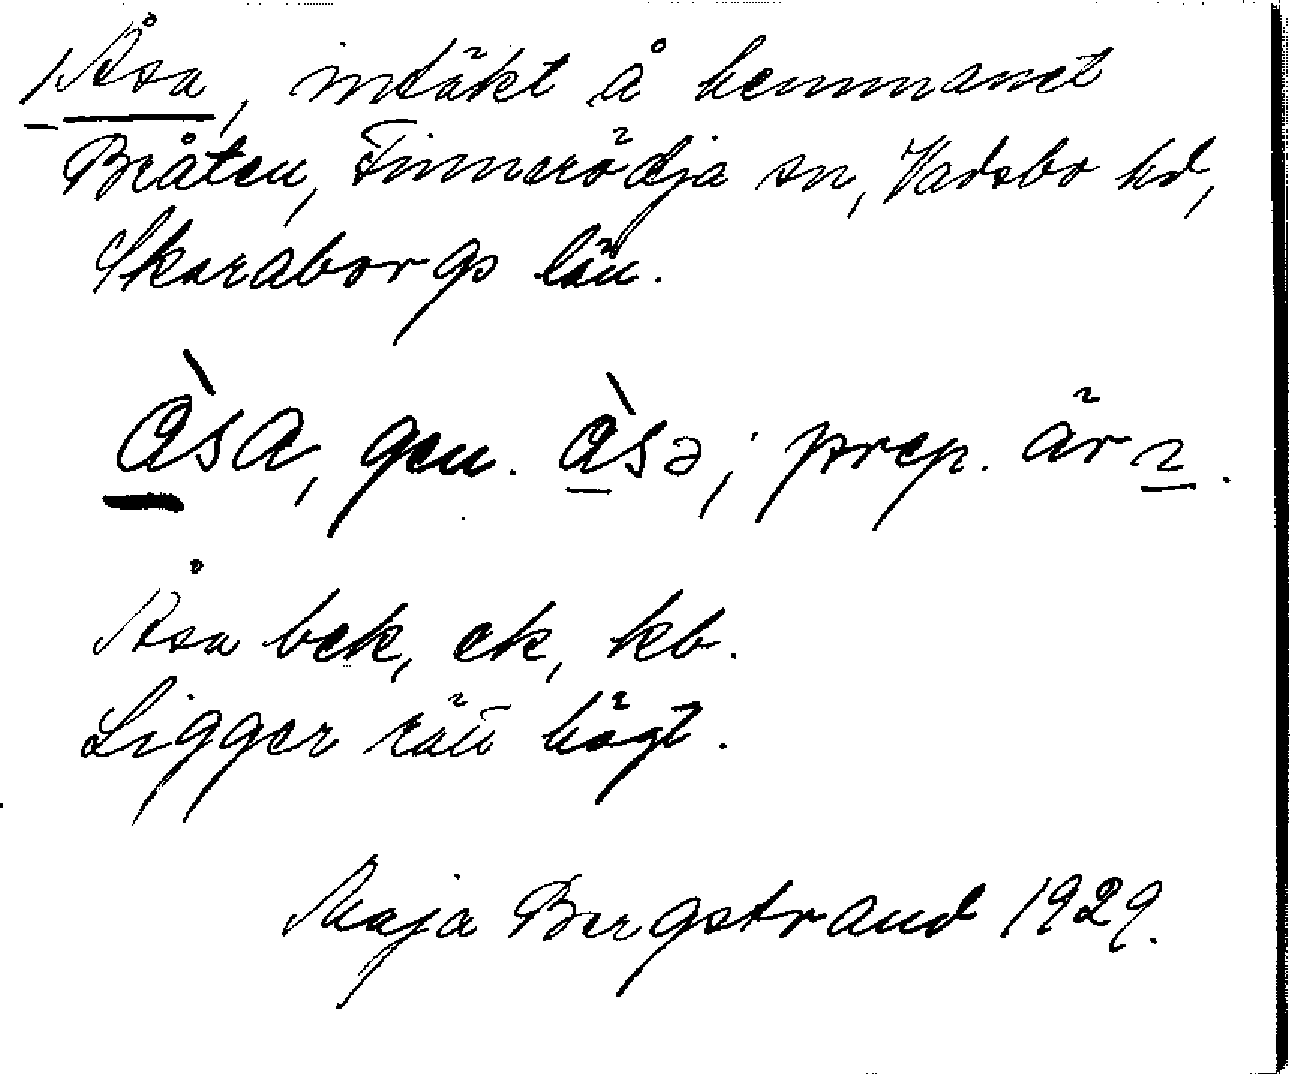 1 Åsa, intäkt å hemmanet
Bråten, Finnerödja sn, Vadsbo hd,
Skaraborgs län.
àsa, gen. àsə; prep. är
Åsa bek, ek, kb.
Ligger rätt högt.
Maja Bergstrand 1929.